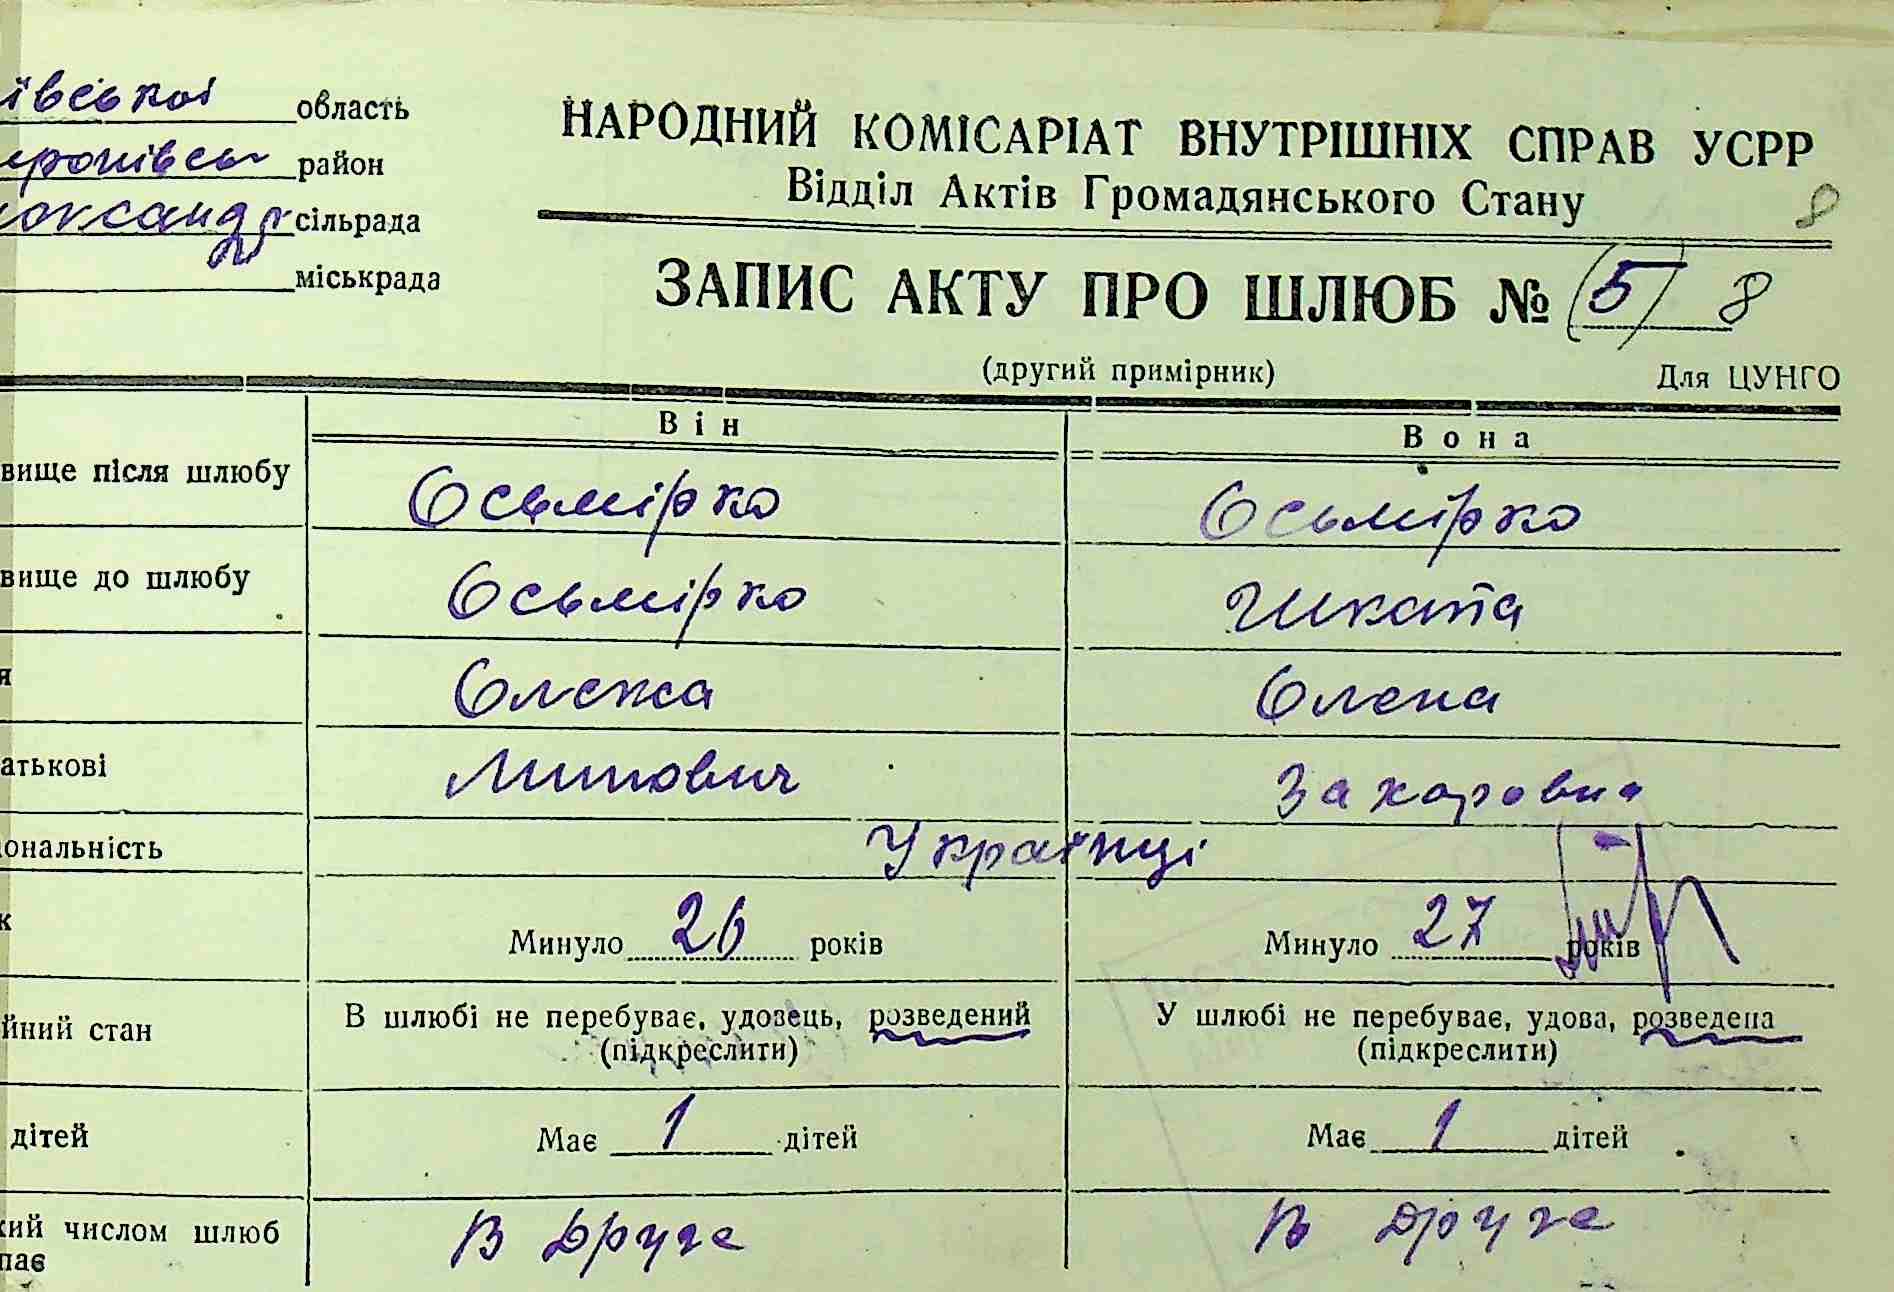 ївської область
район
сільрада
міськрада
НАРОДНИЙ КОМІСАРІАТ ВНУТРІШНІХ СПРАВ УСРР
Відділ Актів Громадянського Стану
8
ЗАПИС АКТУ ПРО ШЛЮБ № (5) 8
(другий примірник)
Для ЦУНГО
Він Вона
вище після шлюбу Осьмірко Осьмірко
вище до шлюбу Осьмірко Шкапа
я Олекса Олена
атькові Захаровна
ональність Українці
к Минуло 26 років Минуло 27 років
йний стан В шлюбі не перебуває, удовець, розведений У шлюбі не перебуває, удова, розведена
(підкреслити) (підкреслити)
дітей Має 1 дітей Має 1 дітей
кий числом шлюб В друге В друге
пає